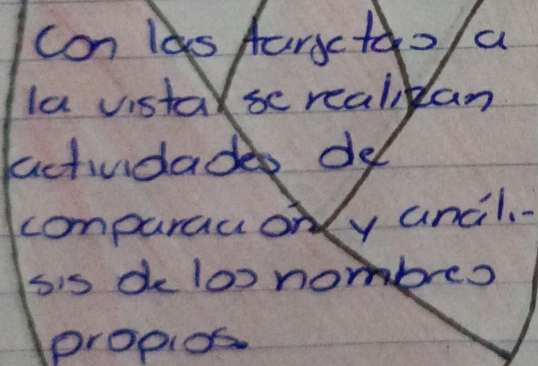 Con las targetas a
la vista se realizan
actividades de
comparación y análi-
sis de los nombres
propios.